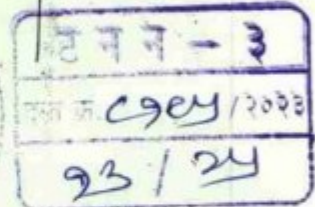 ट न न - ३
दस्त क्र. ८१९५/२०२३
१३ / २५